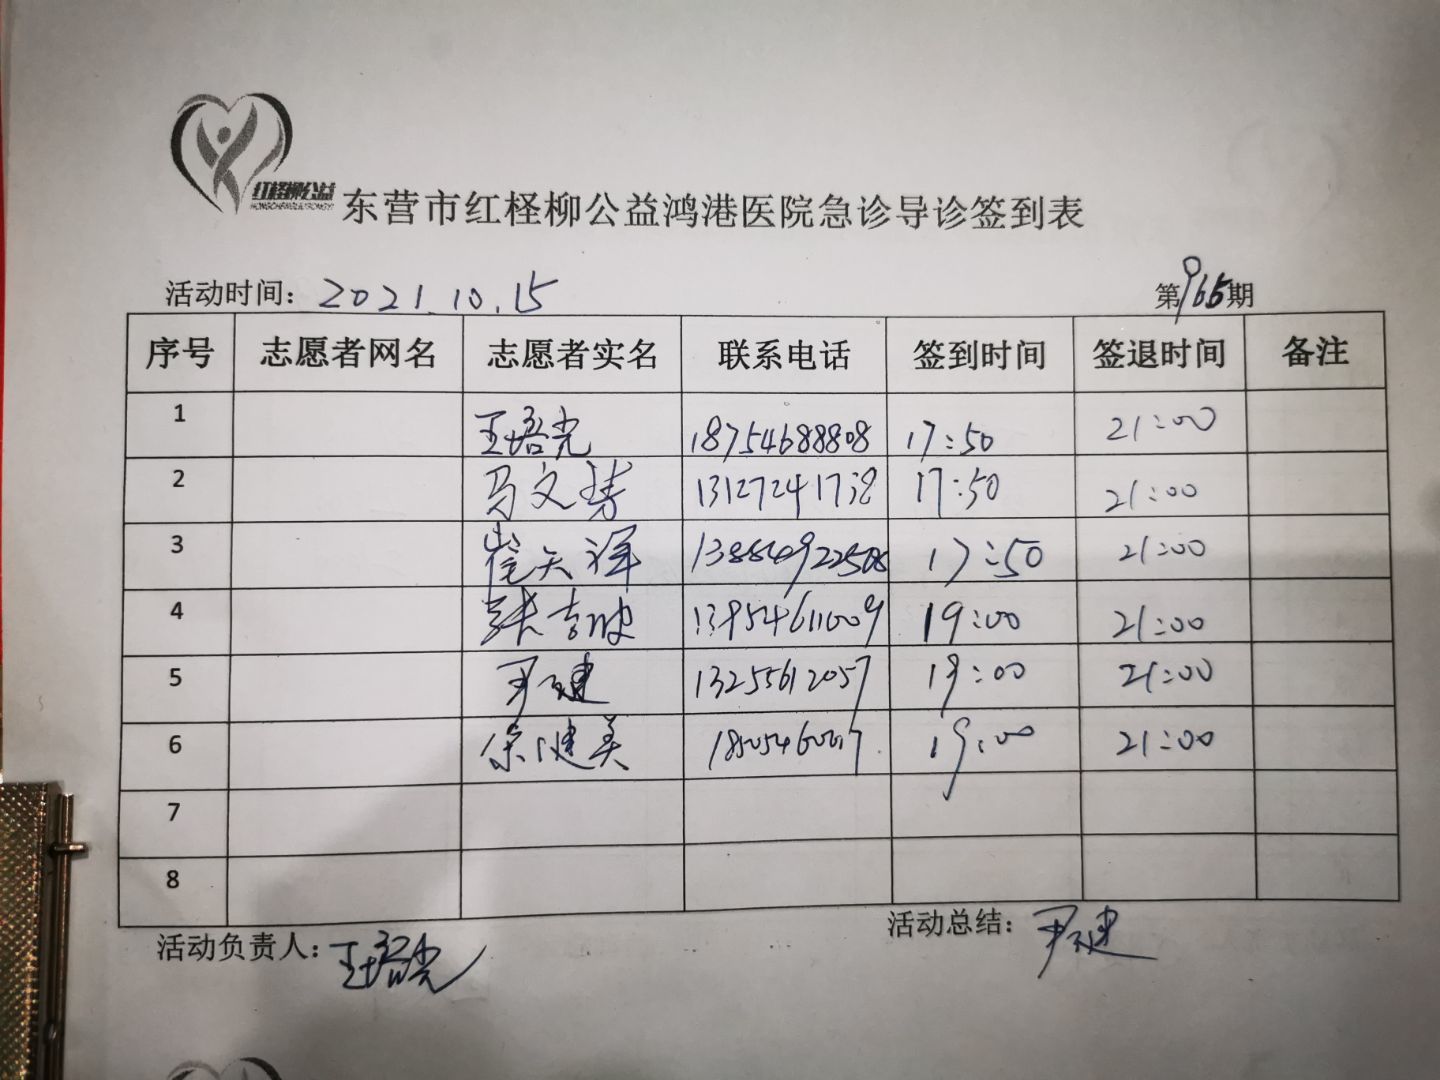 红柽柳公益
东营市红柽柳公益鸿港医院急诊导诊签到表
活动时间：2021.10.15 第965期
序号 志愿者网名 志愿者实名 联系电话 签到时间 签退时间 备注
1 王培光 18754688808 17:50 21:00
2 马文 17:50 21:00
3 崔天祥 13884922508 17:50 21:00
4 张吉 13954611009 19:00 21:00
5 尹建 13255612057 19:00 21:00
6 徐健美 19:00 21:00
7
8
活动负责人：王培光 活动总结：尹建